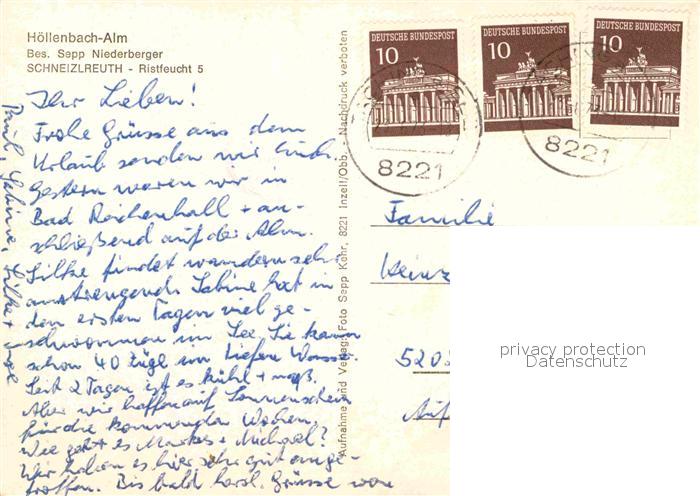 Höllenbach-Alm
Bes. Sepp Niederberger
SCHNEIZLREUTH - Ristfeucht 5
Ihr Lieben!
Frohe Grüsse aus dem
Urlaub senden wir Euch.
Gestern waren wir in
Bad Reichenhall + an-
schließend auf der Alm.
Silke findet wandern sehr
anstrengend. Sabine hat in
den ersten Tagen viel ge-
schwommen im See. Sie kann
schon 40 Züge im tiefen Wasser.
Seit 2 Tagen ist es kühl + naß.
Aber wir hoffen auf Sonnenschein
für die kommenden Wochen.
Wie geht es Markus + Michael?
Wir haben es hier sehr gut ange-
troffen. Bis bald herzl. Grüsse von
Sabine, Silke +
Aufnahme und Verlag: Foto Sepp Kehr, 8221 Inzell/Obb. - Nachdruck verboten
DEUTSCHE BUNDESPOST
10
DEUTSCHE BUNDESPOST
10
DEUTSCHE BUNDESPOST
10
8221
8221
Familie
Heinz
520
privacy protection
Datenschutz